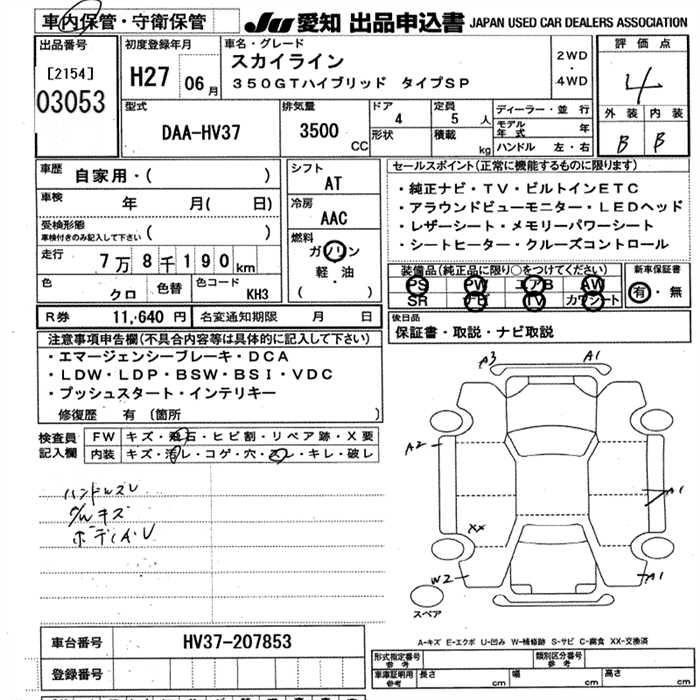 車内保管・守衛保管 JU 愛知 出品申込書 JAPAN USED CAR DEALERS ASSOCIATION
出品番号 初度登録年月 車名・グレード 評価点
[2154] H27 06月 スカイライン 2WD
03053 350GTハイブリッド タイプSP ・4WD 4
型式 排気量 ドア 定員 ディーラー・並行 外装 内装
DAA-HV37 3500CC 4 5人 モデル年式 年 B B
形状 積載 kg ハンドル 左・右
車歴 自家用・( ) シフト AT セールスポイント(正常に機能するものに限ります)
車検 年 月( 日) 冷房 AAC ・純正ナビ・TV・ビルトインETC
受検形態 車検付きのみ記入して下さい ( ) ・アラウンドビューモニター・LEDヘッド
燃料 ガソリン ・レザーシート・メモリーパワーシート
走行 7万8千190km 軽・油 ・シートヒーター・クルーズコントロール
( )
色 クロ 色替 色コード KH3
装備品(純正品に限り○をつけてください) 新車保証書
PS PW エアB AW 有・無
SR ナビ TV カワシート
R券 11,640円 名変通知期限 月 日 後日品
保証書・取説・ナビ取説
注意事項申告欄(不具合内容等は具体的に記入して下さい)
・エマージェンシーブレーキ・DCA
・LDW・LDP・BSW・BSI・VDC
・プッシュスタート・インテリキー
修復歴 有 (箇所 )
検査員記入欄 FW キズ・飛石・ヒビ割・リペア跡・X要
内装 キズ・汚レ・コゲ・穴・スレ・キレ・破レ
ハンドルスレ
キズ
A3 A1
A2 A1
XX
W2 A1
スペア
A-キズ E-エクボ U-凹み W-補修跡 S-サビ C-腐食 XX-交換済
車台番号 HV37-207853
登録番号
形式指定番号 参考 類別区分番号 参考
車庫証明用 参考 長さ cm 幅 cm 高さ cm